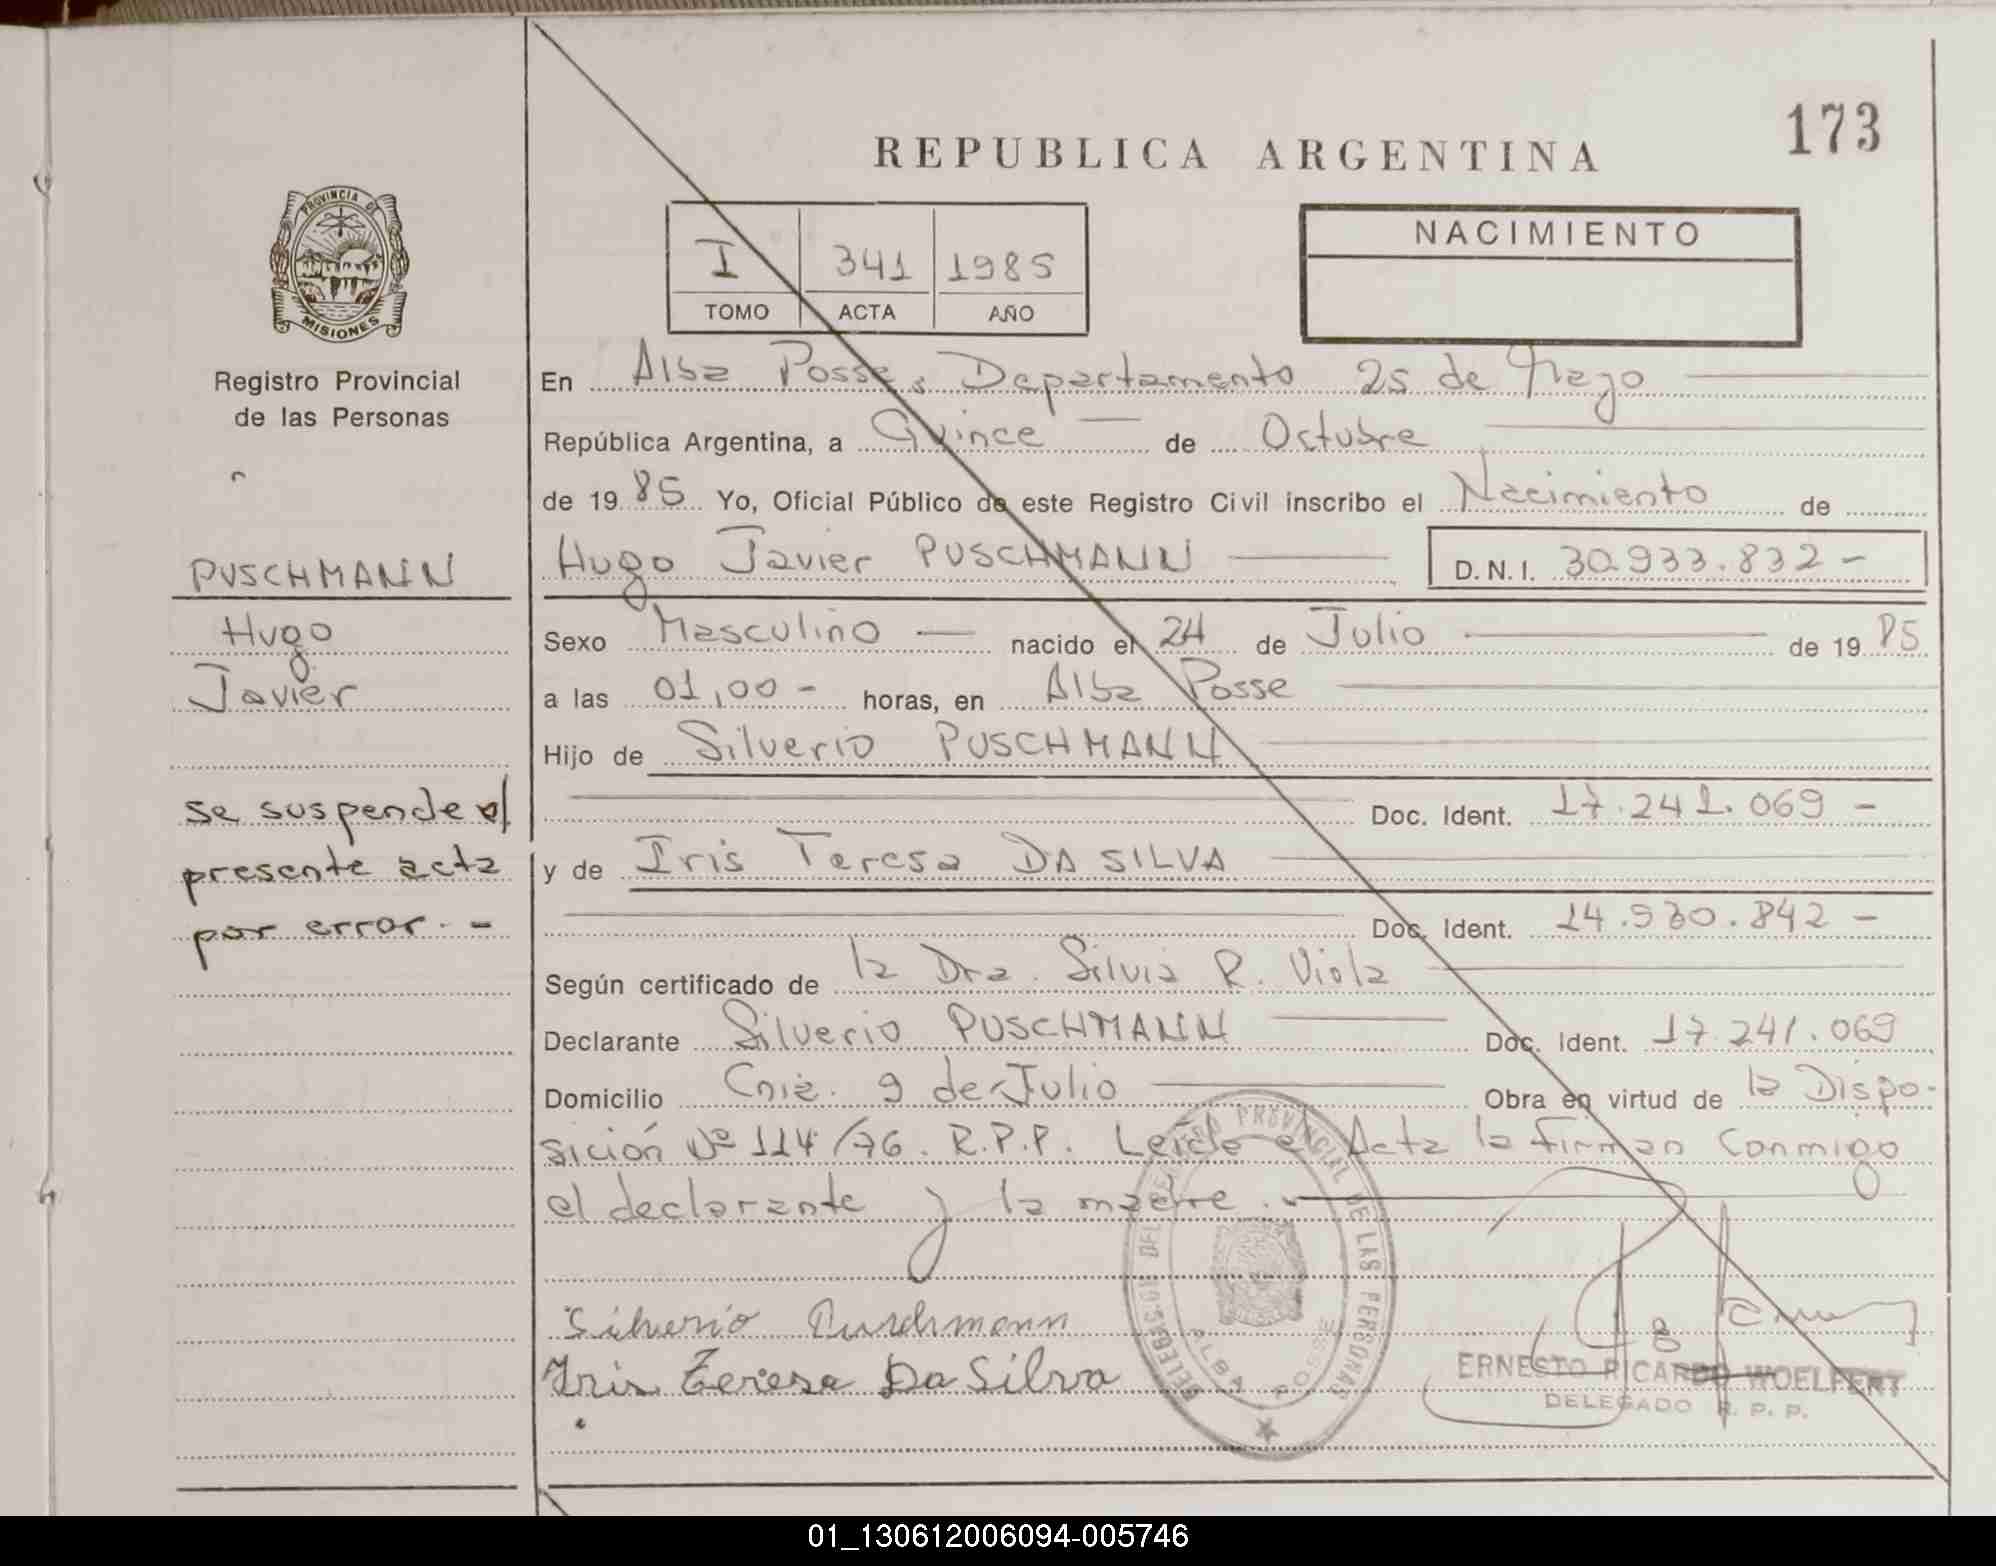 173
REPUBLICA ARGENTINA
PROVINCIA DE
MISIONES
Registro Provincial
de las Personas
I 341 1985
TOMO ACTA AÑO
NACIMIENTO
En Alba Posse, Departamento 25 de Mayo
República Argentina, a Quince de Octubre
de 1985 Yo, Oficial Público de este Registro Civil inscribo el Nacimiento de
Hugo Javier PUSCHMANN D.N.I. 30.933.832 -
PUSCHMANN
Hugo
Javier
Sexo Masculino — nacido el 24 de Julio de 1985
a las 01,00 - horas, en Alba Posse
Hijo de Silverio PUSCHMANN
Doc. Ident. 17.241.069 -
y de Iris Teresa DA SILVA
Doc. Ident. 14.930.842 -
se suspende el
presente acta
por error. -
Según certificado de la Dra. Silvia R. Viola
Declarante Silverio PUSCHMANN Doc. Ident. 17.241.069
Domicilio Cnia. 9 de Julio Obra en virtud de la Dispo-
sición Nº 114/76. R.P.P. Leída el Acta la firman conmigo
el declarante y la madre.
Silverio Puschmann
Iris Teresa Da Silva
DELEGACION DEL REGISTRO PROVINCIAL DE LAS PERSONAS
ALBA POSSE
ERNESTO RICARDO WOELFERT
DELEGADO R. P. P.
01_130612006094-005746